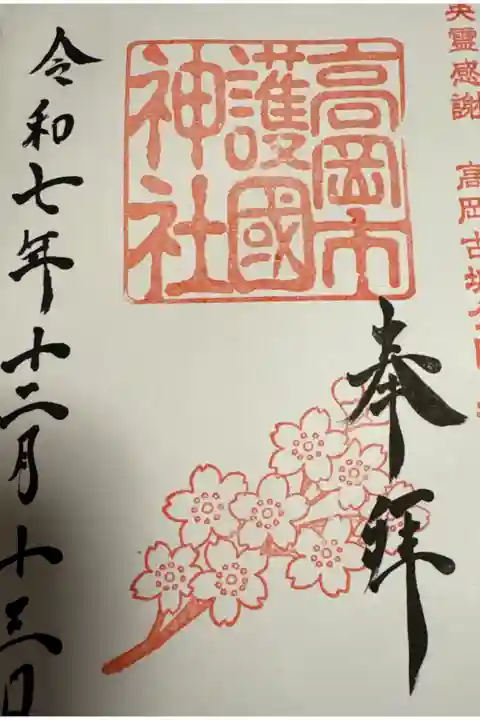 英霊感謝 高岡古城公園
奉拝
高岡市
護國
神社
令和七年十二月十三日